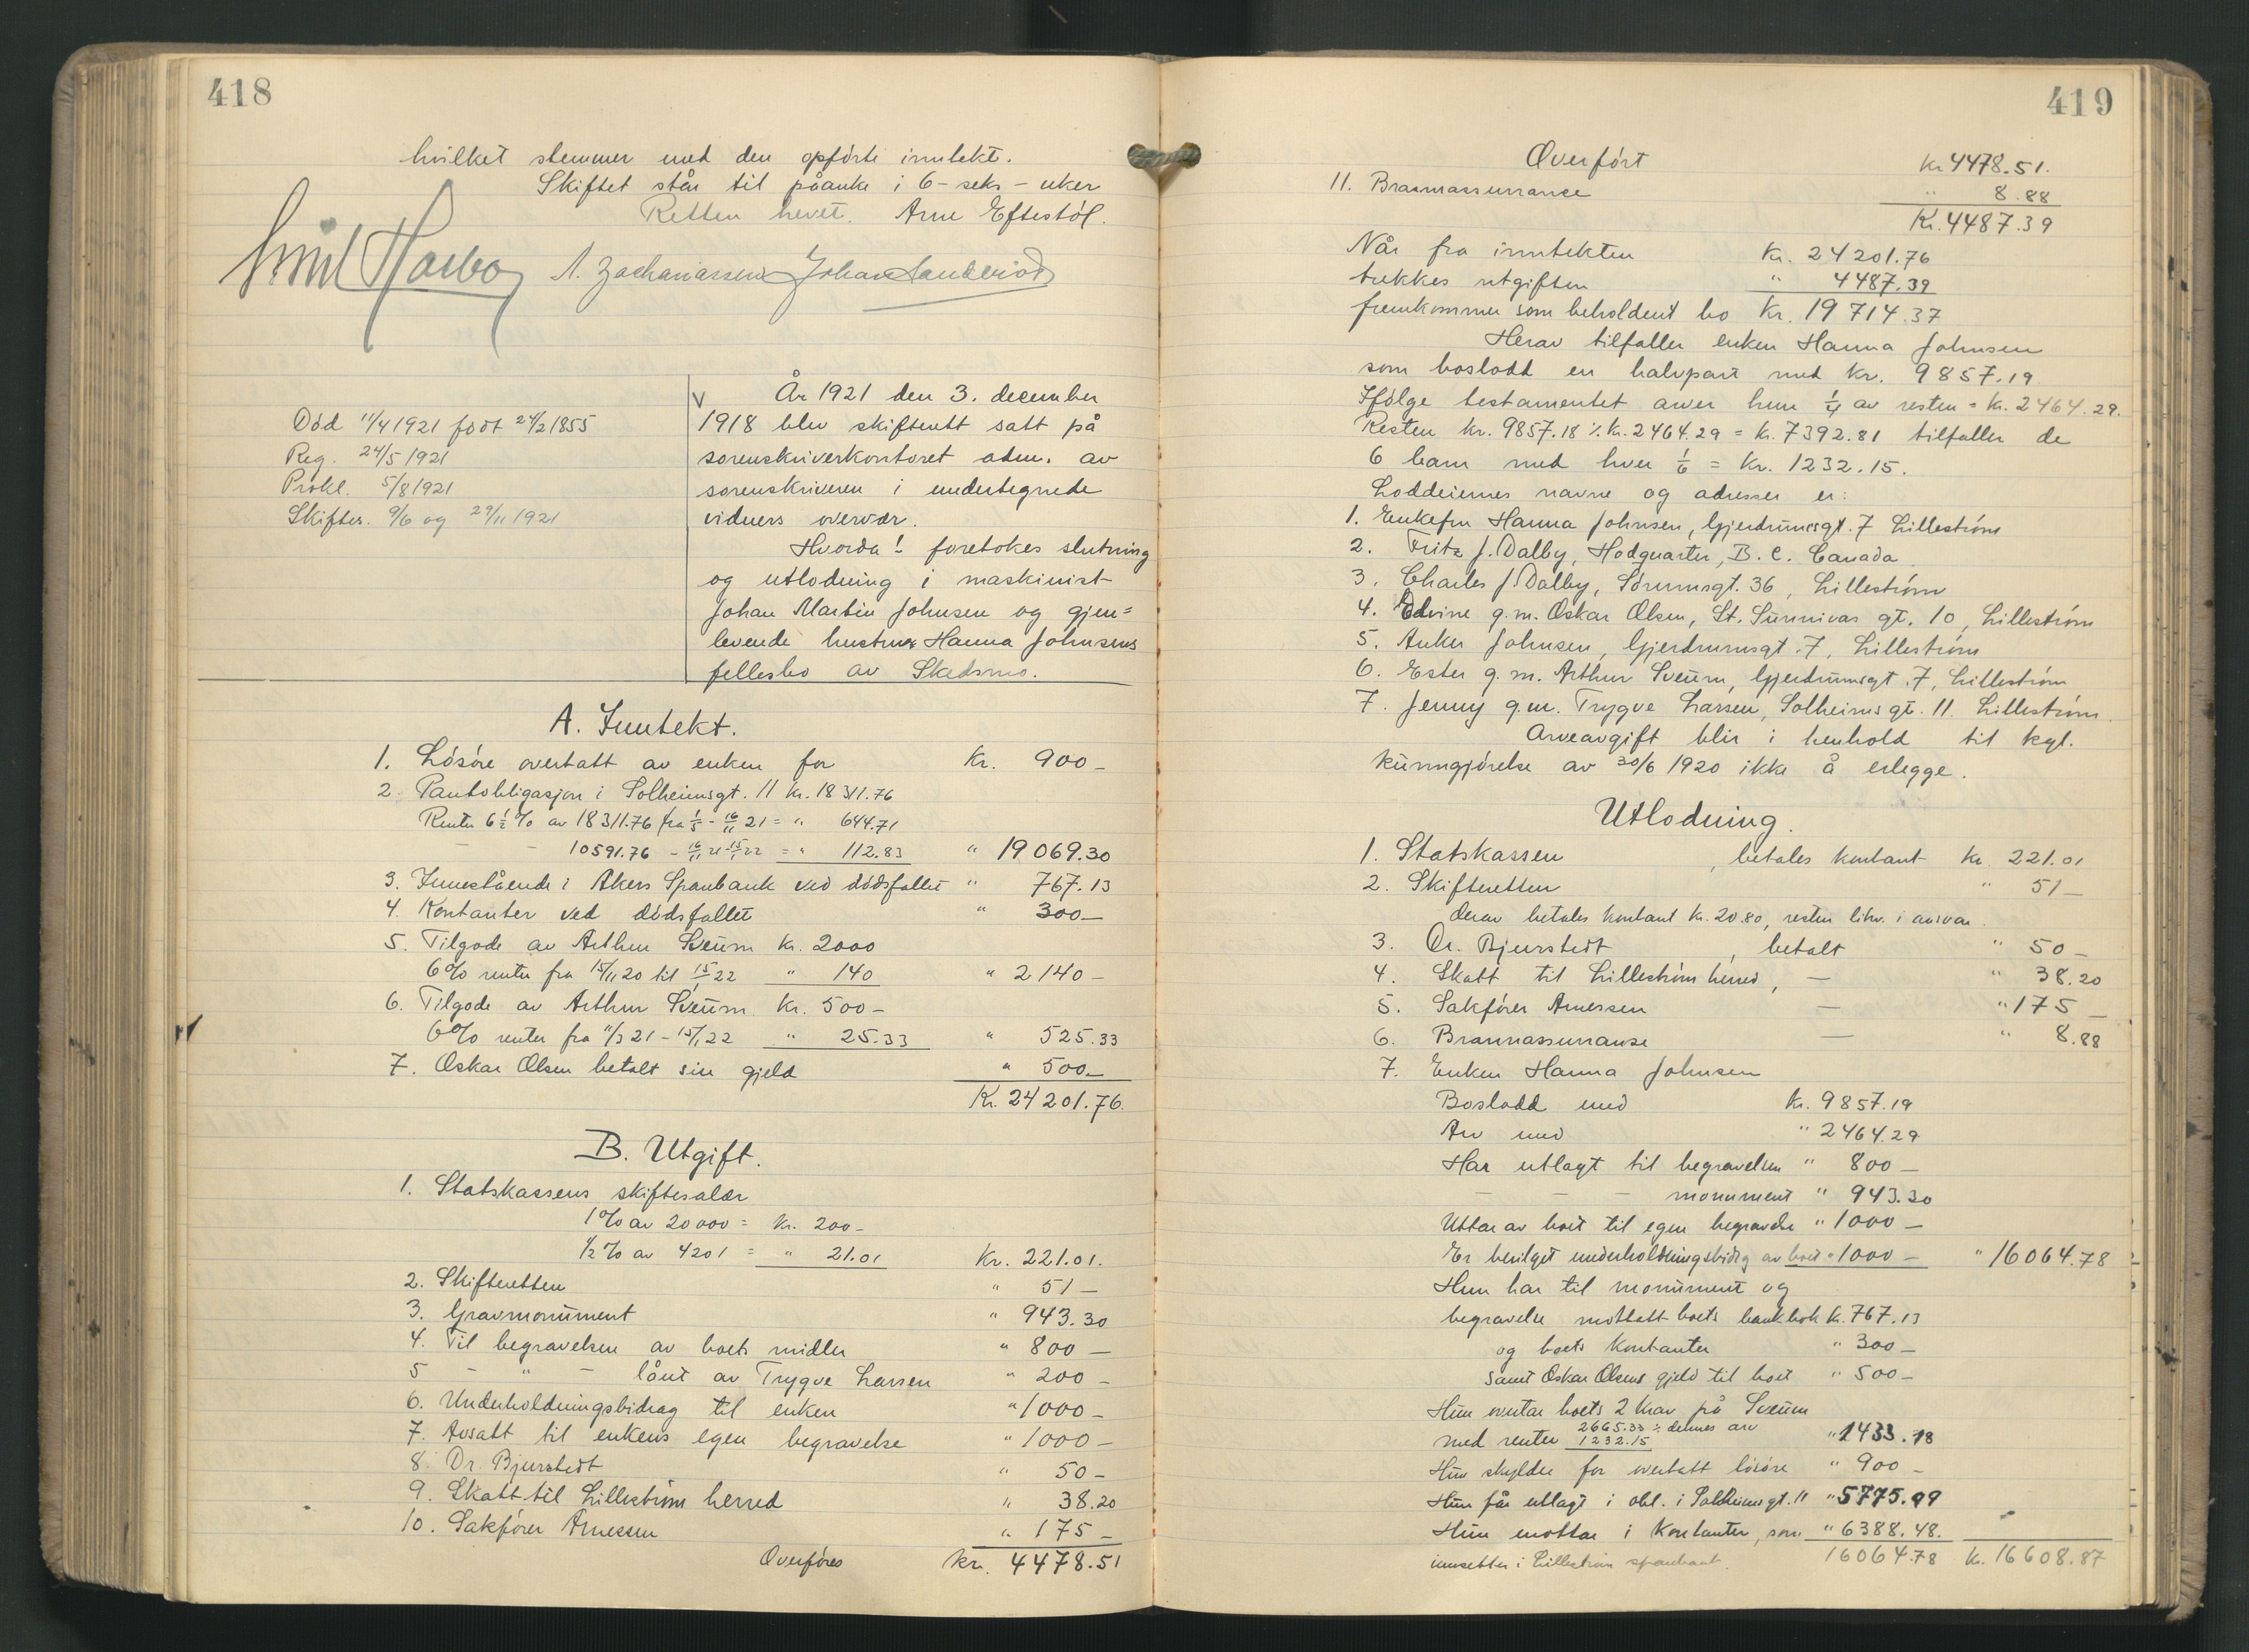 418
hvilket stemmer med den opförte inntekt.
Skiftet står til påanke i 6 - seks - uker
Retten hevet. Arne Eftestöl.
A. Zachariassen Johan
Död 11/4 1921 födt 24/2 1855
Reg. 24/5 1921
Prokl. 5/8 1921
Skiftes. 9/6 og 29/11 1921
År 1921 den 3. december
1918 blev skifterett satt på
sorenskriverkontoret adm. av
sorenskriveren i undertegnede
vidners overvær.
Hvorda! foretokes slutning
og utlodning i maskinist
Johan Martin Johnsen og gjen=
levende hustrus Hanna Johnsens
fellesbo av Skedsmo.
A. Inntekt.
1. Lösöre overtatt av enken for Kr. 900 -
2. Pantobligasjon i Solheimsgt. 11 kr. 18 311.76
Renter 6 1/2 % av 18311.76 fra 1/5 - 16/11 21 = " 644.71
- - 10591.76 - 16/11 21 - 15/1 22 = " 112.83 " 19 069.30
3. Innestående i Akers Sparebank ved dödsfallet " 767.13
4. Kontanter ved dödsfallet " 300 -
5. Tilgode av Arthur Sveum kr. 2000
6% renter fra 15/11 20 til 15/1 22 " 140 " 2140 -
6. Tilgode av Arthur Sveum kr. 500 -
6% renter fra 11/3 21 - 15/1 22 " 25.33 " 525.33
7. Oskar Olsen betalt sin gjeld " 500 -
Kr. 24 201.76.
B. Utgift.
1. Statskassens skiftesalær
1% av 20 000 = kr. 200 -
1/2 % av 4201 = " 21.01 Kr. 221.01.
2. Skifteretten " 51 -
3. Gravmonument " 943.30
4. Til begravelsen av boets midler " 800 -
5 - " - lånt av Trygve Larsen " 200 -
6. Underholdningsbidrag til enken " 1000 -
7. Avsatt til enkens egen begravelse " 1000 -
8. Dr. Bjurstedt " 50 -
9. Skatt til Lilleström herred " 38.20
10. Sakförer Arnessen " 175 -
Overföres kr. 4478.51
419
Overfört kr 4478.51.
11. Brannassurranse " 8.88
Kr. 4487.39
Når fra inntekten Kr. 24 201.76
trekkes utgiften " 4487.39
fremkommer som beholdent bo Kr. 19 714.37
Herav tilfaller enken Hanna Johnsen
som boslodd en halvpart med kr. 9857.19
Ifölge testamentet arver hun 1/4 av resten = kr. 2464.29.
Resten kr. 9857.18 ÷ kr. 2464.29 = kr. 7392.81 tilfaller de
6 barn med hver 1/6 = kr. 1232.15.
Loddeiernes navne og adresser er:
1. Enkefru Hanna Johnsen, Gjerdrumsgt. 7 Lilleström
2. Fritz J. Dalby, Hodquarter, B. C. Canada
3. Charles J. Dalby, Sörumsgt. 36, Lilleström
4. Edvine g.m. Oskar Olsen, St. Sunnivas gt. 10, Lilleström
5. Anker Johnsen, Gjerdrumsgt. 7, Lilleström
6. Ester g.m. Arthur Sveum, Gjerdrumsgt. 7, Lilleström
7. Jenny g.m. Trygve Larsen, Solheimsgt. 11. Lilleström.
Arveavgift blir i henhold til kgl.
kunngjörelse av 30/6 1920 ikke å erlegge.
Utlodning.
1. Statskassen, betales kontant kr. 221.01
2. Skifteretten " 51 -
derav betales kontant kr. 20.80, resten
3. Dr. Bjurstedt, betalt " 50 -
4. Skatt til Lilleström herred, - " 38.20
5. Sakförer Arnessen - " 175 -
6. Brannassurranse - " 8.88
7. Enken Hanna Johnsen
Boslodd med kr. 9857.19
Arv med " 2464.29
Har utlagt til begravelsen " 800 -
- - - monument " 943.30
Uttar av boet til egen begravelse " 1000 -
Er bevilget underholdningsbidrag av boet " 1000 - " 16064.78
Hun har til monument og
begravelse mottatt boets bankbok kr. 767.13
og boets kontanter " 300 -
samt Oskar Olsens gjeld til boet " 500 -
Hun overtar boets 2 krav på Sveum
med renter 2665.33 ÷ dennes arv 1232.15 " 1433.18
Hun skylder for overtatt lösöre " 900 -
Hun får utlagt i obl. i Solheimsgt. 11 " 5775.99
Hun mottar i kontanter, som " 6388.48.
innsettes i Lilleström sparebank. 16064.78 kr. 16608.87